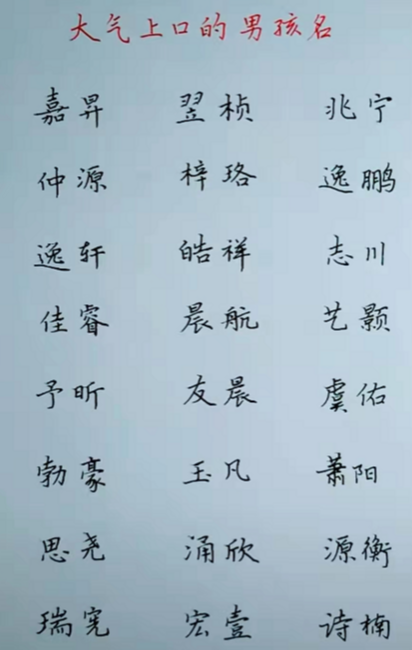 大气上口的男孩名
嘉昇 翌桢 兆宁
仲源 梓珞 逸鹏
逸轩 皓祥 志川
佳睿 晨航 艺颢
予昕 友晨 虞佑
勃豪 玉凡 萧阳
思尧 涌欣 源衡
瑞宪 宏壹 诗楠